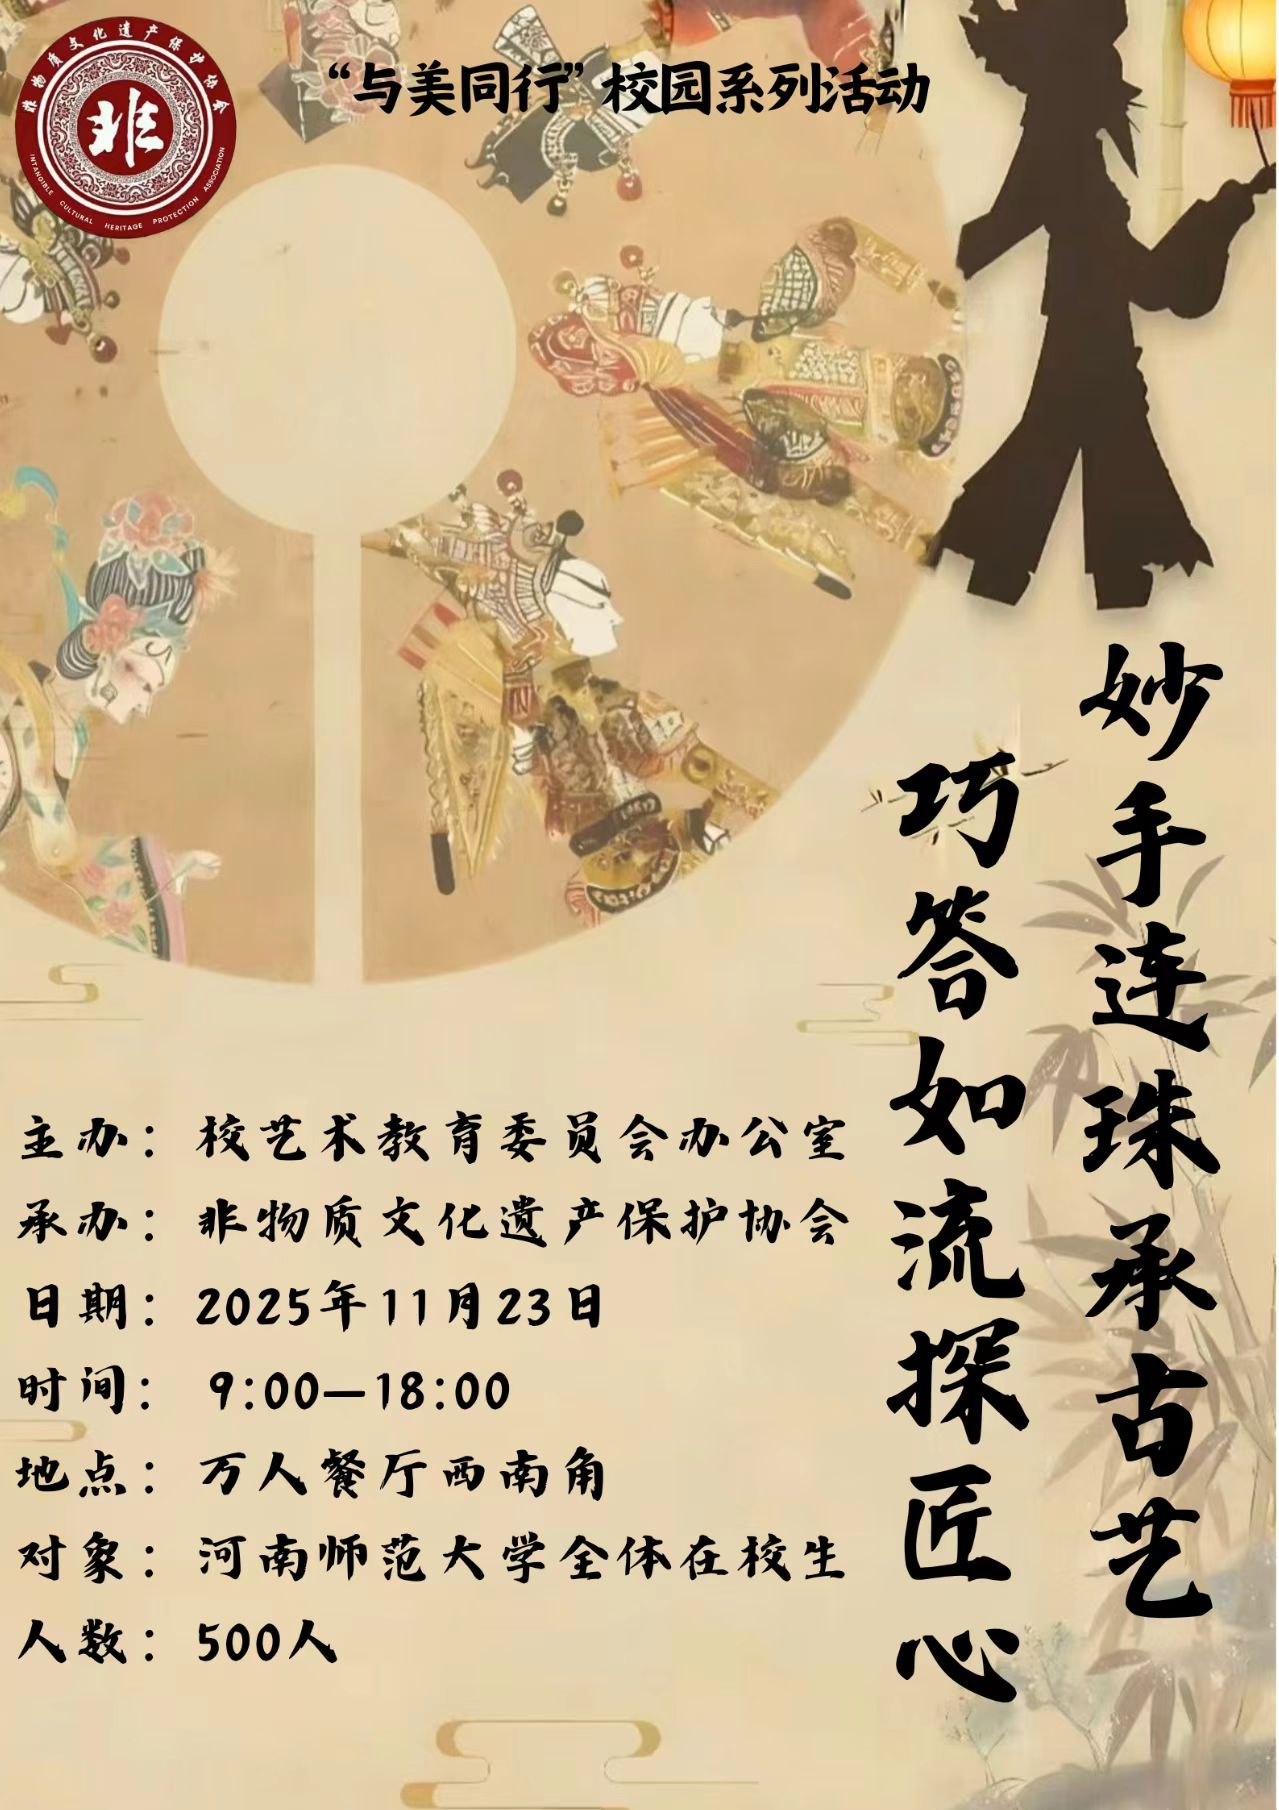 非物质文化遗产保护协会
非
INTANGIBLE CULTURAL HERITAGE PROTECTION ASSOCIATION
“与美同行”校园系列活动
妙手连珠承古艺
巧答如流探匠心
主办：校艺术教育委员会办公室
承办：非物质文化遗产保护协会
日期：2025年11月23日
时间： 9:00—18:00
地点：万人餐厅西南角
对象：河南师范大学全体在校生
人数：500人